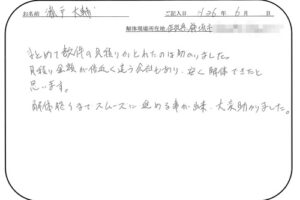 お名前 瀬戸 大輔 ご記入日 H26年 6月 日
解体現場所在地
まとめて数件の見積りがとれたのは助かりました。
見積り金額が倍近く違う会社もあり、安く解体できたと
思います。
解体終了までスムーズに進める事が出来、大変助かりました。